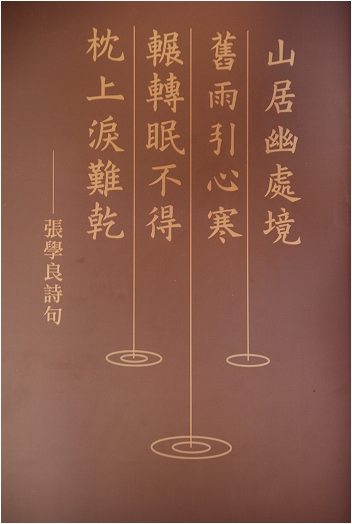 山居幽處境
舊雨引心寒
輾轉眠不得
枕上淚難乾
——張學良詩句